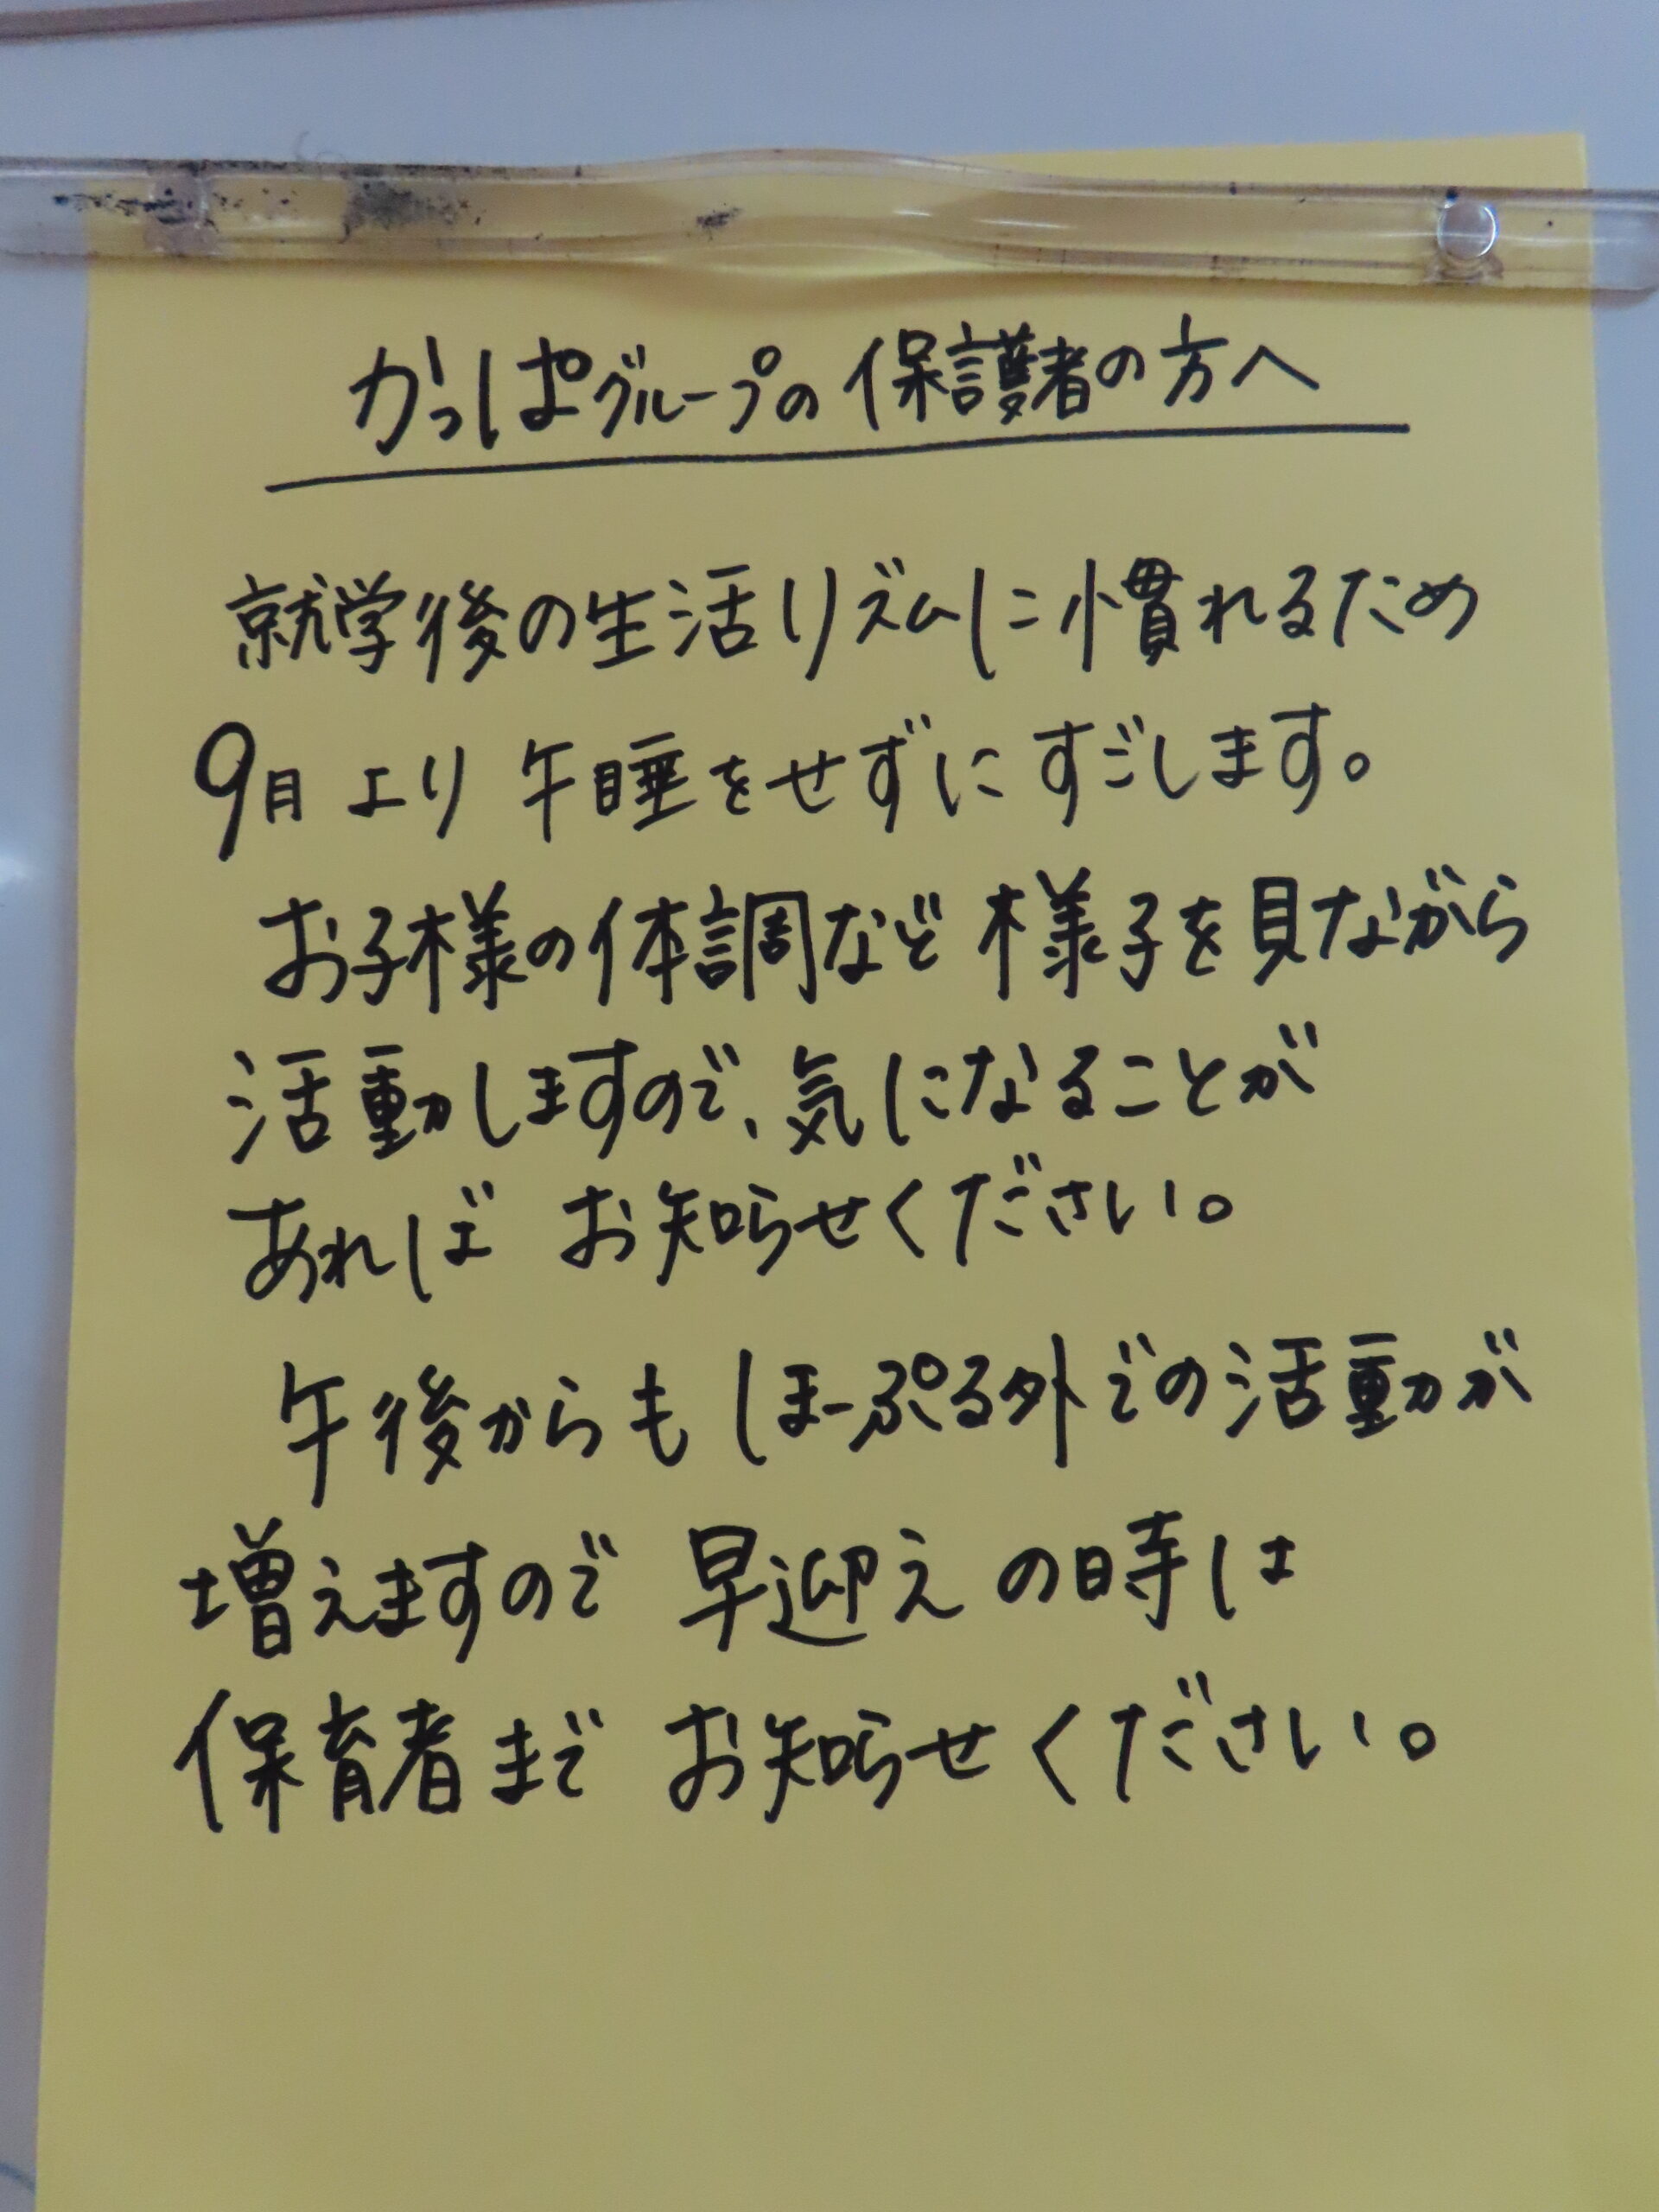 かっぱグループの保護者の方へ
就学後の生活リズムに慣れるため
9月より 午睡をせずに すごします。
お子様の体調など 様子を見ながら
活動しますので、気になることが
あれば お知らせください。
午後からも ほーぷる外での活動が
増えますので 早迎えの時は
保育者まで お知らせください。